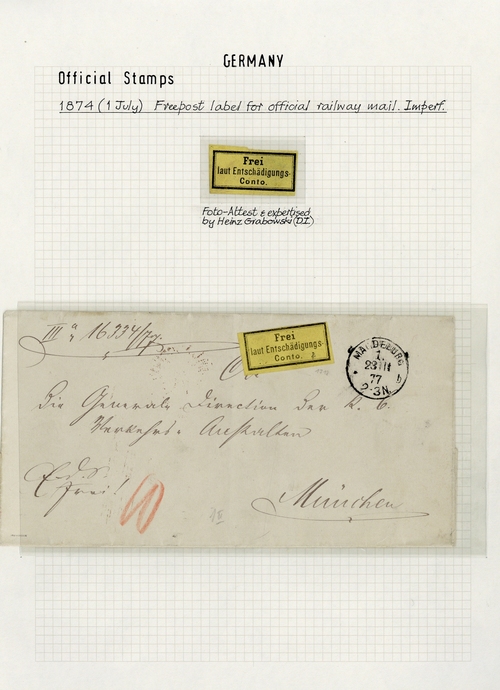 GERMANY
Official Stamps
1874 (1 July) Freepost label for official railway mail. Imperf.
Frei
laut Entschädigungs-
Conto.
Foto-Attest & expertised
by Heinz Grabowski (D.I)
III a, 16334/77.
Frei
laut Entschädigungs-
Conto.
MAGDEBURG
1
23 III
77
2-3N.
b
An
Die Generale Direction der K. b.
Verkehrs-Anstalten
E. d. S.
frei!
München